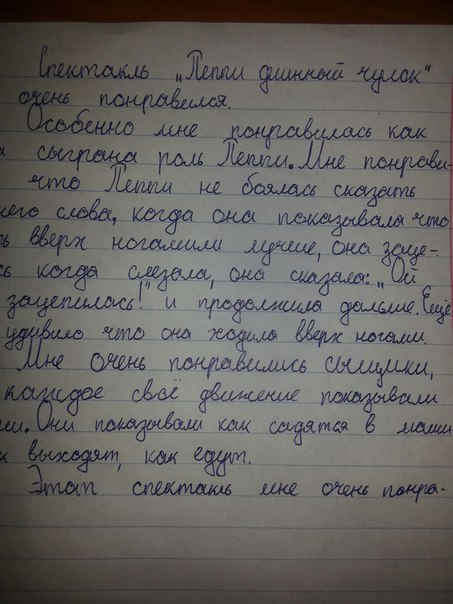 Спектакль „Пеппи длинный чулок"
очень понравился.
Особенно мне понравилась как
сыграна роль Пеппи. Мне понрави-
что Пеппи не боялась сказать
него слова, когда она показывала что
ть вверх ногамили лучше, она заце-
сь когда слезала, она сказала: „Ой
зацепилась!" и продолжила дальше. Ещё
удивило что она ходила вверх ногами.
Мне очень понравились сыщики,
каждое своё движение показывали
ми. Они показывали как садятся в маши
к выходят, как едут.
Этот спектакль мне очень понра-